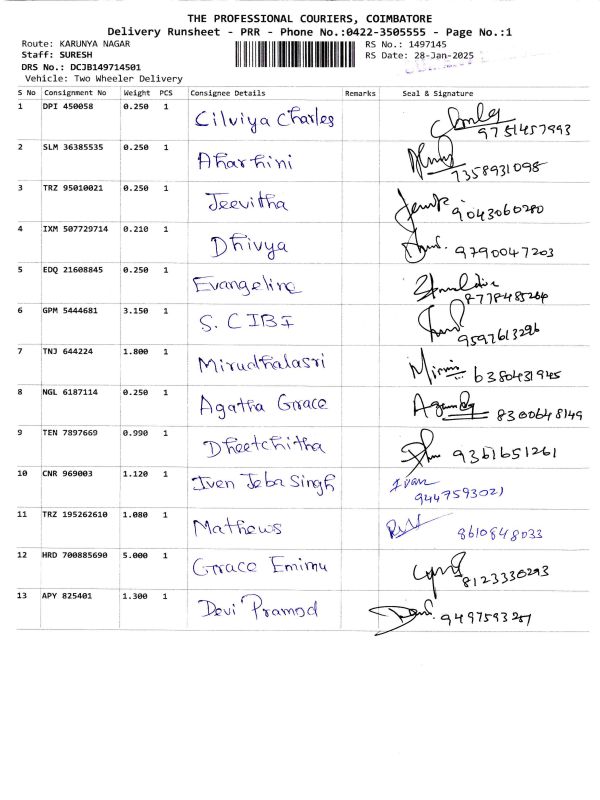 THE PROFESSIONAL COURIERS, COIMBATORE
Delivery Runsheet - PRR - Phone No.:0422-3505555 - Page No.:1
Route: KARUNYA NAGAR RS No.: 1497145
Staff: SURESH RS Date: 28-Jan-2025
DRS No.: DCJB149714501
Vehicle: Two Wheeler Delivery
S No Consignment No Weight PCS Consignee Details Remarks Seal & Signature
1 DPI 450058 0.250 1 Cilviya Charles 9751457993
2 SLM 36385535 0.250 1 Aharhini 7358931098
3 TRZ 95010021 0.250 1 Jeevitha 9043060280
4 IXM 507729714 0.210 1 Dhivya 9790047203
5 EDQ 21608845 0.250 1 Evangeline 8778485264
6 GPM 5444681 3.150 1 S. CIBI 9597613296
7 TNJ 644224 1.800 1 Mirudhalasri 6380431945
8 NGL 6187114 0.250 1 Agatha Grace 8300648149
9 TEN 7897669 0.990 1 Dheetchitha 9361651261
10 CNR 969003 1.120 1 Iven Jeba Singh Ivan 9447593021
11 TRZ 195262610 1.080 1 Mathews 8610848033
12 HRD 700885690 5.000 1 Grace Emimu 8123330293
13 APY 825401 1.300 1 Devi Pramod 9497593287